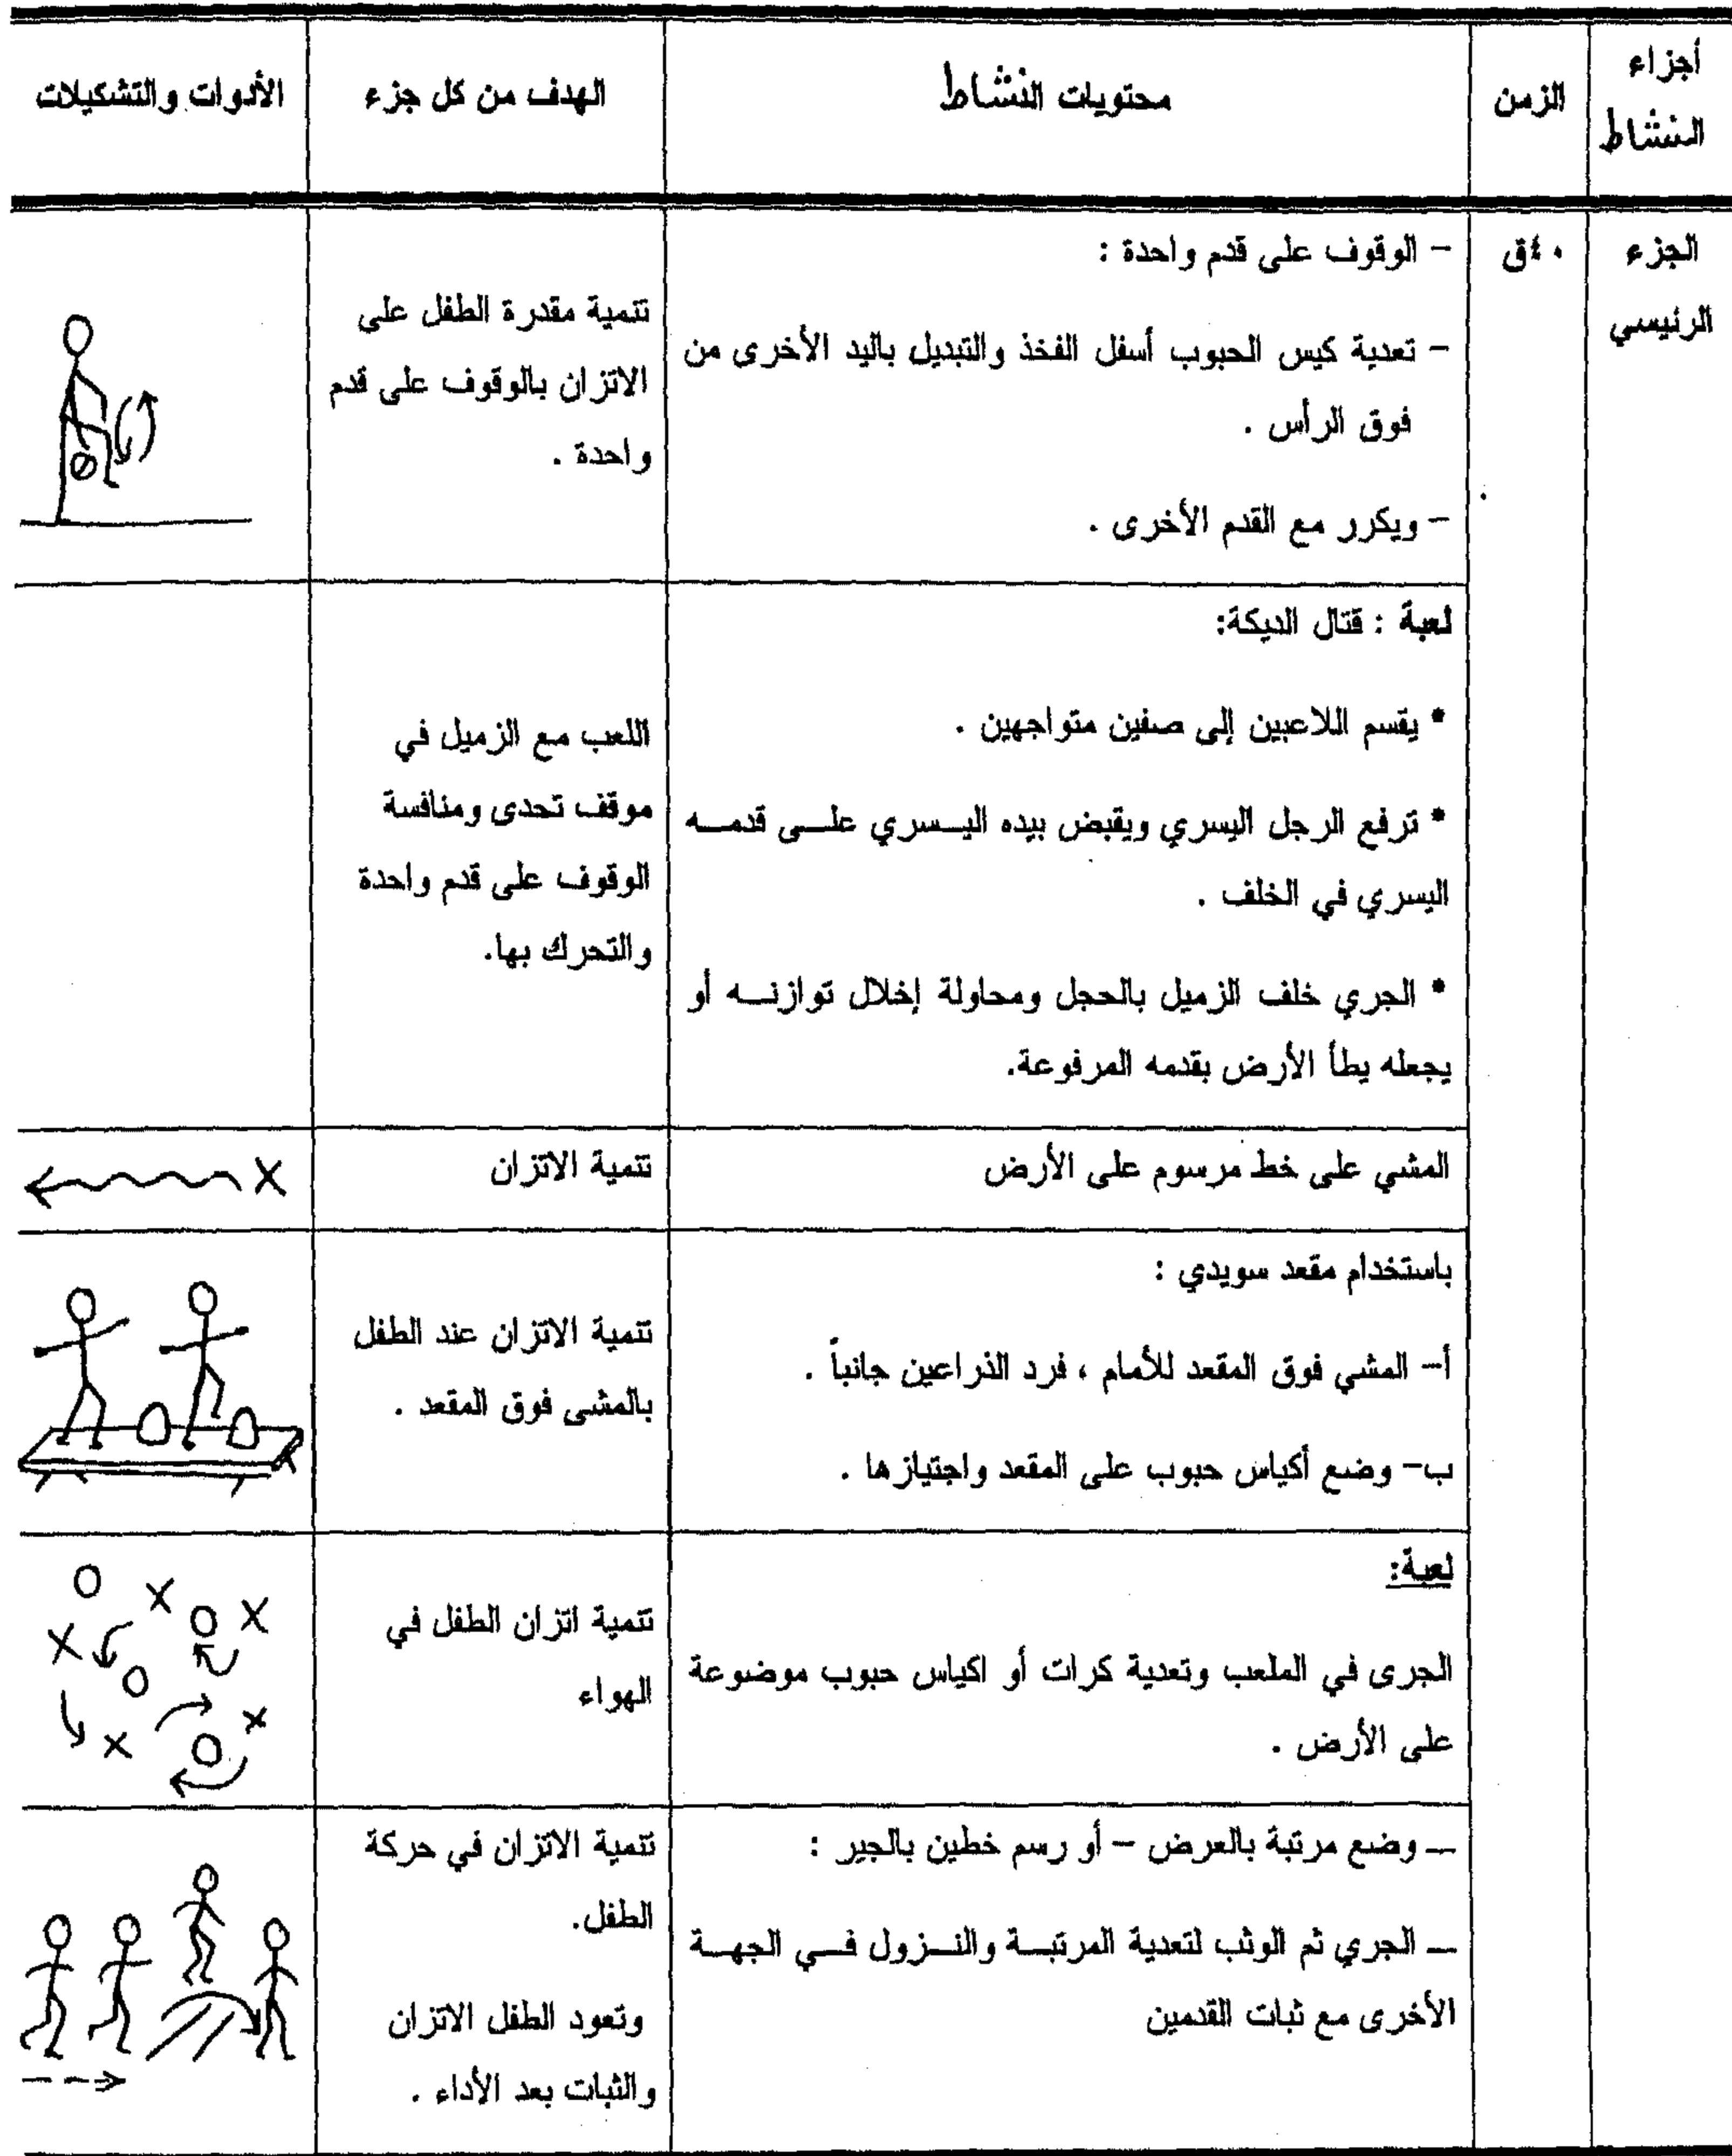 أجزاء
النشاط
الزمن
محتويات النشاط
الهدف من كل جزء
الأدوات والتشكيلات
الجزء
الرئيسي
٤٠ق
– الوقوف على قدم واحدة :
– تعدية كيس الحبوب أسفل الفخذ والتبديل باليد الأخرى من
فوق الرأس .
– ويكرر مع القدم الأخرى .
تنمية مقدرة الطفل على
الاتزان بالوقوف على قدم
واحدة .
لعبة : قتال الديكة:
* يقسم اللاعبين إلى صفين متواجهين .
* ترفع الرجل اليسري ويقبض بيده اليسري على قدمه
اليسري في الخلف .
* الجري خلف الزميل بالحجل ومحاولة إخلال توازنه أو
يجعله يطأ الأرض بقدمه المرفوعة.
اللعب مع الزميل في
موقف تحدى ومنافسة
الوقوف على قدم واحدة
والتحرك بها.
المشي على خط مرسوم على الأرض
تنمية الاتزان
X
باستخدام مقعد سويدي :
أ– المشي فوق المقعد للأمام ، فرد الذراعين جانباً .
ب– وضع أكياس حبوب على المقعد واجتيازها .
تنمية الاتزان عند الطفل
بالمشى فوق المقعد .
لعبة:
الجرى في الملعب وتعدية كرات أو اكياس حبوب موضوعة
على الأرض .
تنمية اتزان الطفل في
الهواء
ـ وضع مرتبة بالعرض – أو رسم خطين بالجير :
ـ الجري ثم الوثب لتعدية المرتبة والنزول في الجهة
الأخرى مع ثبات القدمين
تنمية الاتزان في حركة
الطفل.
وتعود الطفل الاتزان
والثبات بعد الأداء .